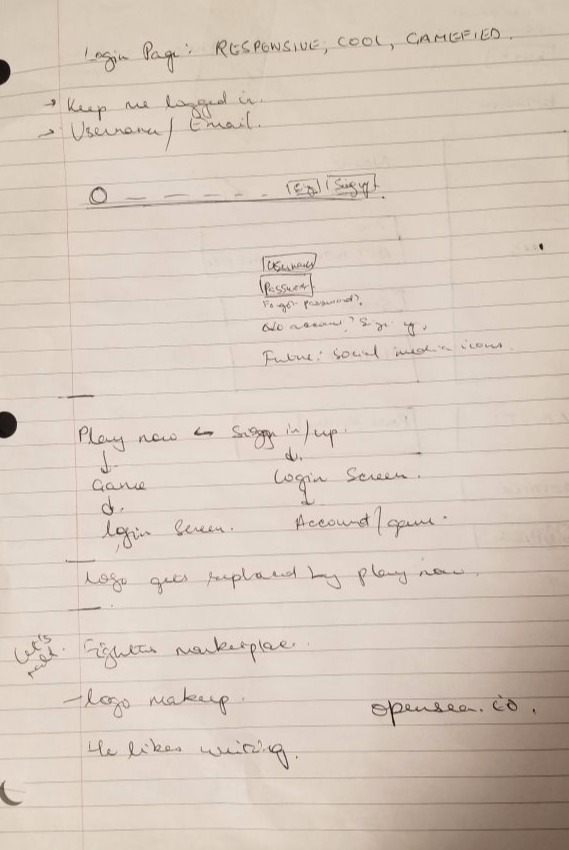 Login Page: RESPONSIVE, COOL, GAMEFIED.
→ Keep me logged in.
→ Username/ Email.
Sign up
Username
Password
Forgot password?
No account? Sign up.
Future: social media icons.
Play now ← Sign in/up.
↓ ↓
Game Login Screen.
↓ ↓
login screen. Account/game.
Logo gets replaced by play now.
Let's
marketplace.
- logo makeup.
opensea.io.
He likes writing.